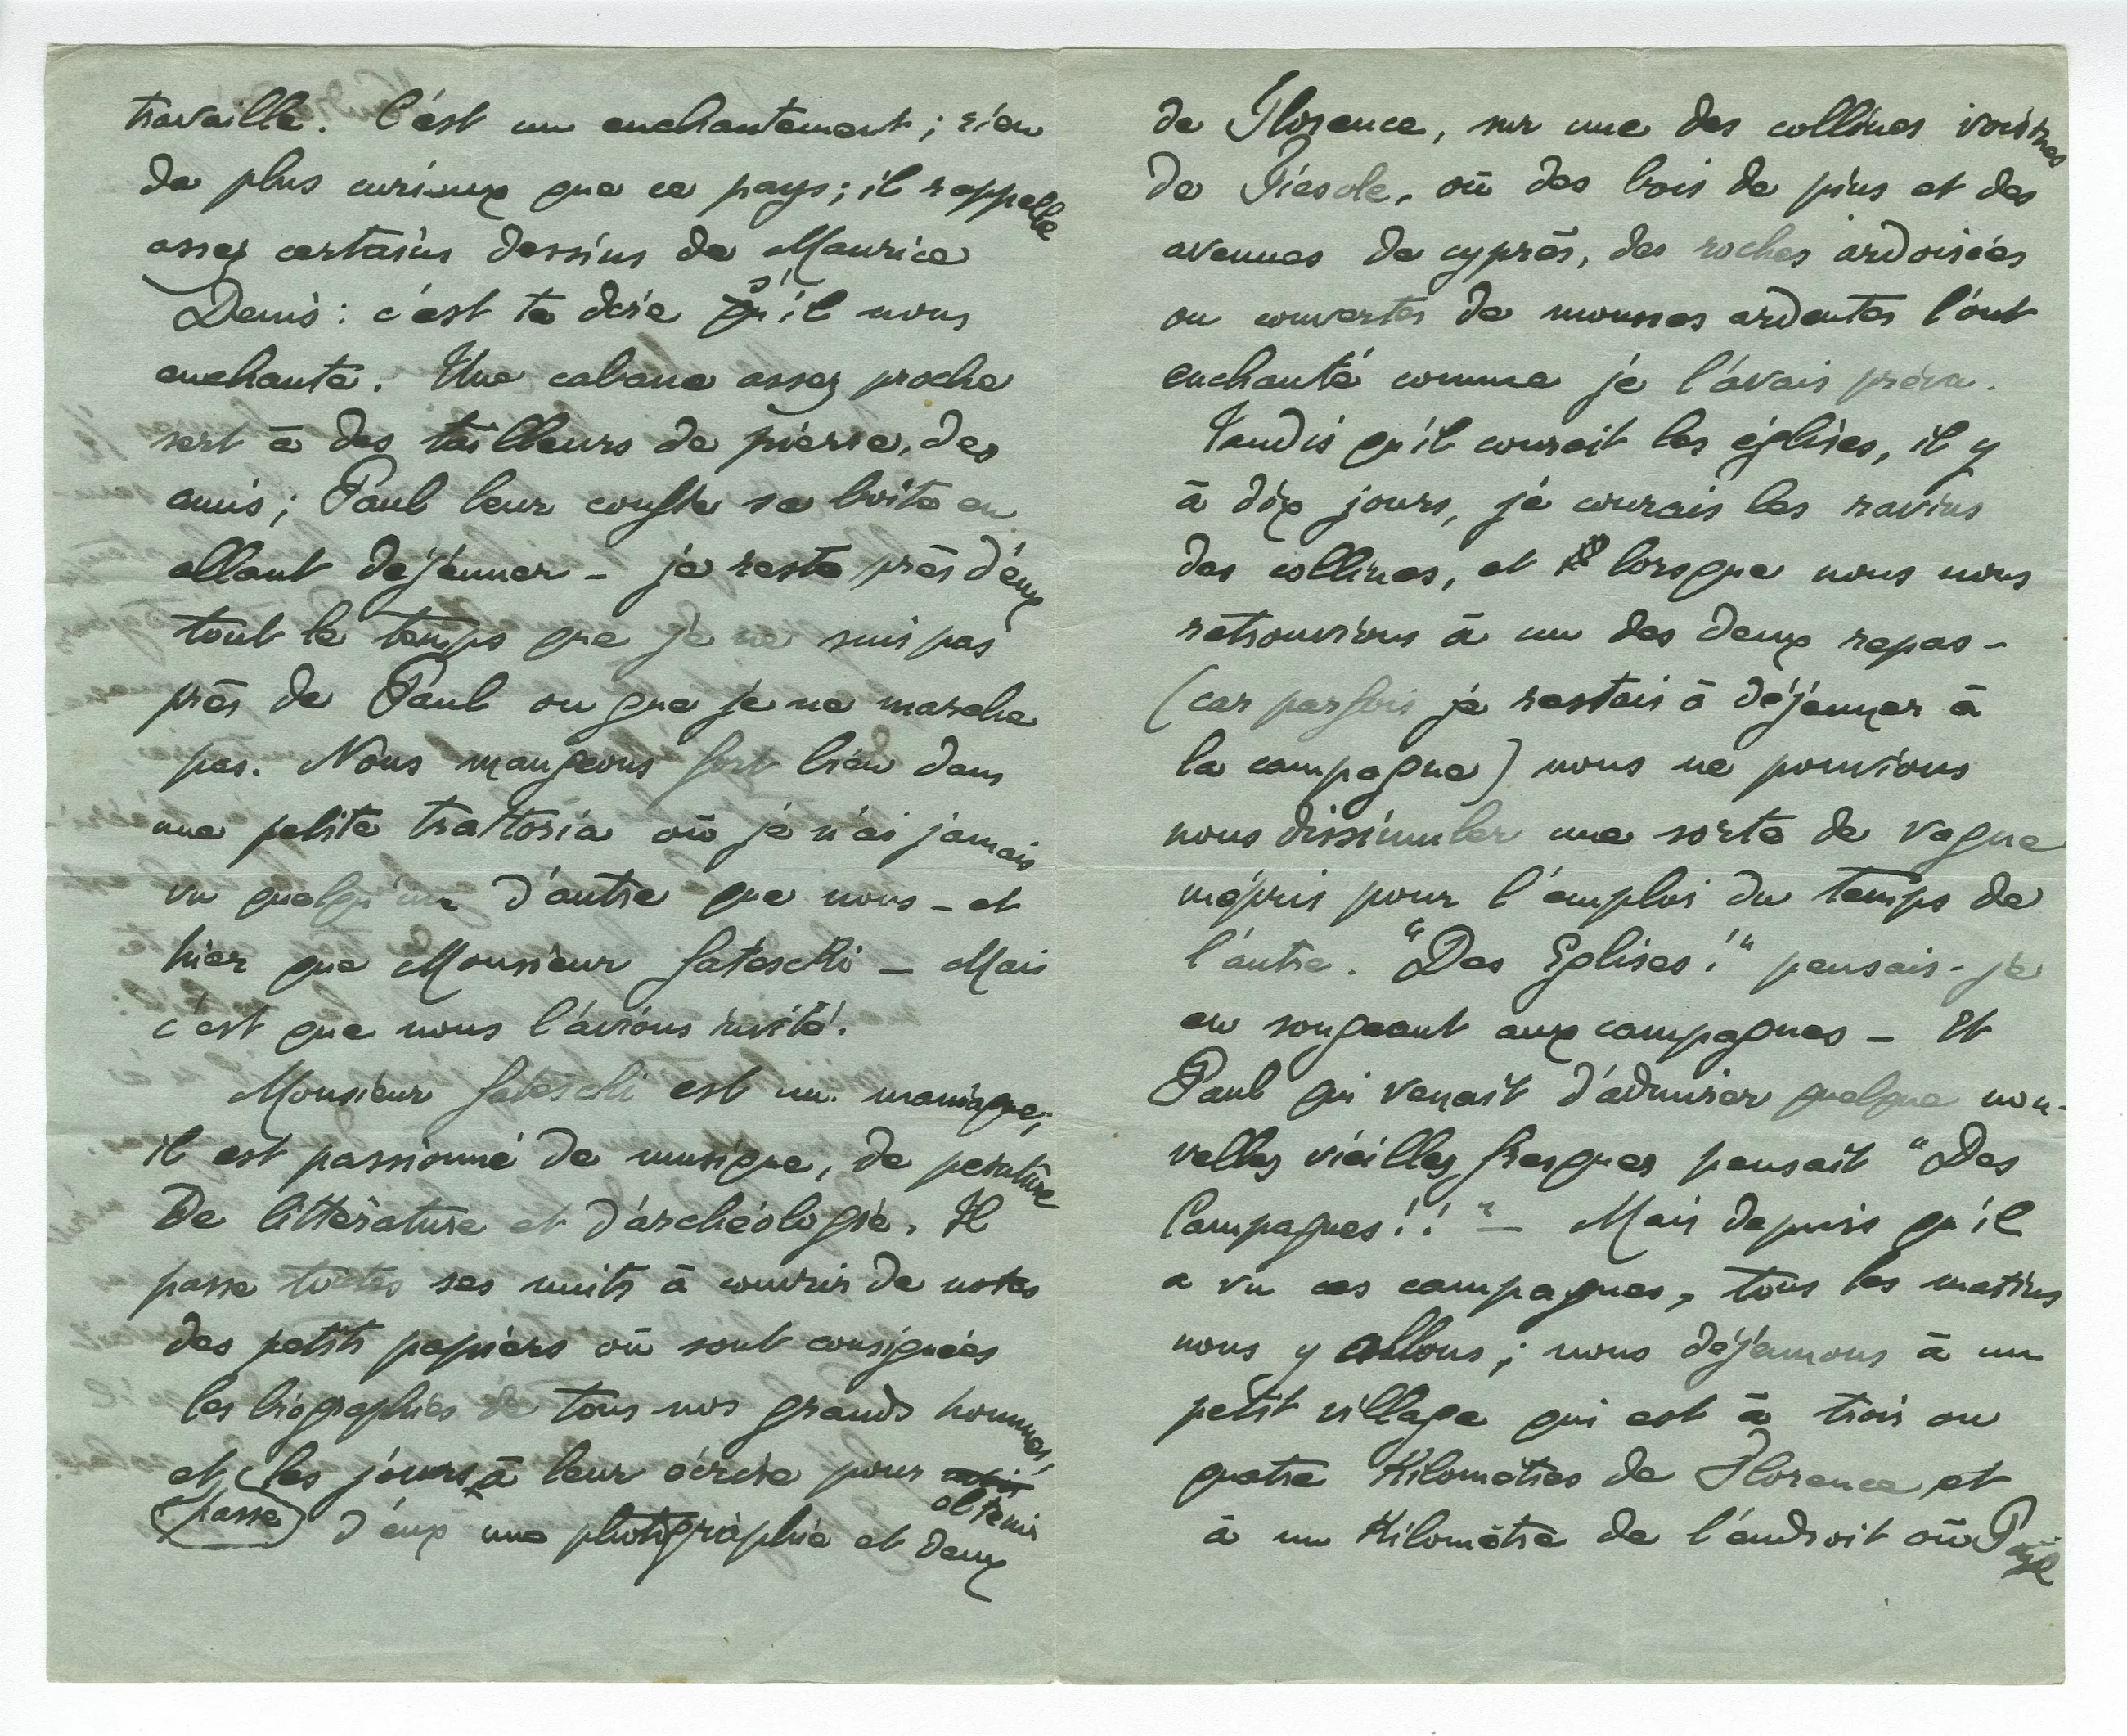 travaille. C'est un enchantement ; rien
de plus curieux que ce pays ; il rappelle
assez certains dessins de Maurice
Denis : c'est te dire s'il nous
enchante. Une cabane assez proche
sert à des tailleurs de pierre, des
amis ; Paul leur confie sa boîte en
allant déjeuner – je reste près d'eux
tout le temps que je ne suis pas
près de Paul ou que je ne marche
pas. Nous mangeons fort bien dans
une petite trattoria où je n'ai jamais
vu quelqu'un d'autre que nous – et
hier que Monsieur Gateschi – Mais
c'est que nous l'avions invité.
Monsieur Gateschi est un maniaque ;
il est passionné de musique, de peinture
De littérature et d'archéologie. Il
passe toutes ses nuits à couvrir de notes
des petits papiers où sont consignées
les biographies de tous nos grands hommes,
et les jours à leur écrire pour obtenir
(passe) d'eux une photographie et deux
de Florence, sur une des collines voisines
de Fiesole, où des bois de pins et des
avenues de cyprès, des roches ardoisées
ou couvertes de mousses ardentes l'ont
enchanté comme je l'avais prévu.
Tandis qu'il courait les églises, il y
à dix jours, je courais les ravins
des collines, et lorsque nous nous
retrouvions à un des deux repas –
(car parfois je restais à déjeuner à
la campagne) nous ne pouvions
nous dissimuler une sorte de vague
mépris pour l'emploi du temps de
l'autre. "Des Eglises !" pensais-je
en songeant aux campagnes – Et
Paul qui venait d'admirer quelque nou-
velles vieilles fresques pensait "Des
Campagnes !! " – Mais depuis qu'il
a vu ces campagnes, tous les matins
nous y allons ; nous déjeunons à un
petit village qui est à trois ou
quatre Kilomètres de Florence et
à un Kilomètre de l'endroit où Paul